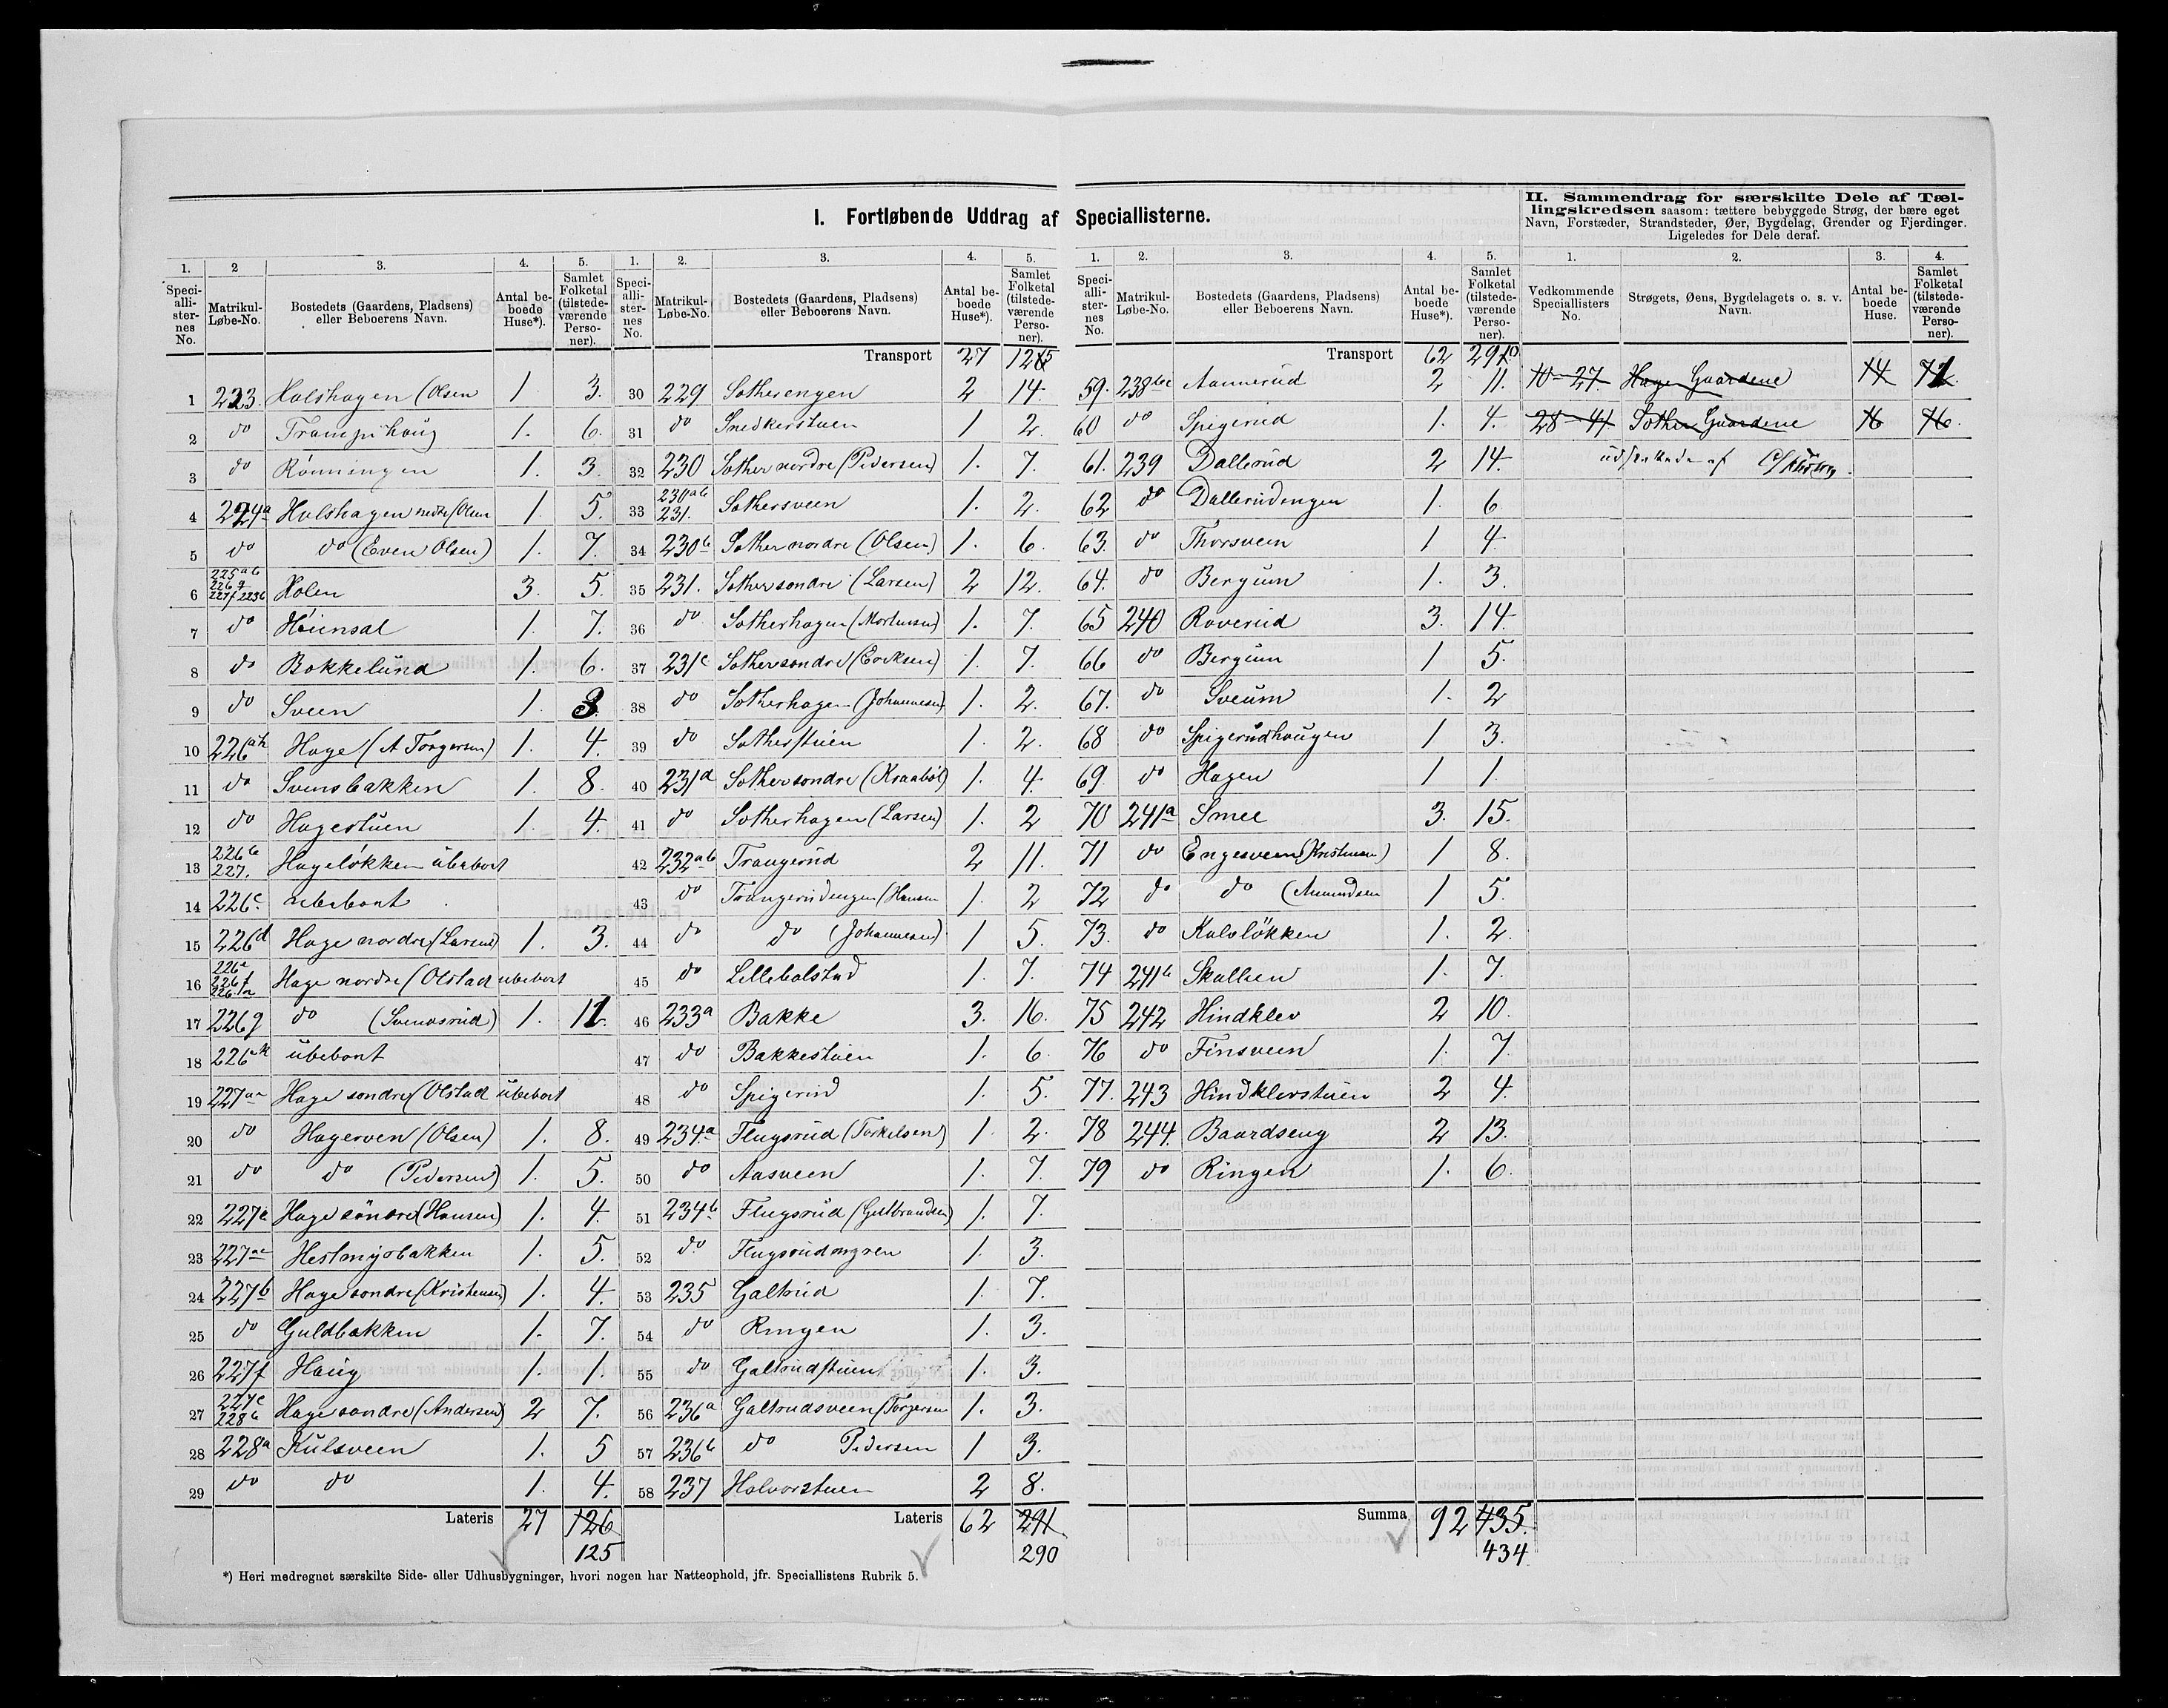 I. Fortløbende Uddrag af Speciallisterne.
II. Sammendrag for særskilte Dele af Tællingskredsen saasom: tættere bebyggede Strøg, der bære eget
Navn, Forstæder, Strandsteder, Øer, Bygdelag, Grender og Fjerdinger.
Ligeledes for Dele deraf.
1. 2 3. 4. 5.
Speciallisternes No. Matrikul-Løbe-No. Bostedets (Gaardens, Pladsens) eller Beboerens Navn. Antal beboede Huse*). Samlet Folketal (tilstedeværende Personer).
1 223. Holshagen (Olsen 1 3.
2 do Trampihaug 1. 6.
3 do Rönningen 1. 3.
4 224a Holshagen nedre (Olsen 1. 5.
5 do do (Even Olsen) 1. 7.
6 225ab 226q 227f 223b Holen 3. 5.
7 do Heimsal 1. 7.
8 do Bakkelund 1. 6.
9 do Sveen 1. 3.
10 226ah Hage (A Torgersen) 1. 4.
11 do Svensbakken 1. 8.
12 do Hagestuen 1. 4.
13 226b 227. Hagelökken ubeboet
14 226c. ubeboet
15 226d Hage nordre (Larsen) 1. 3.
16 226e 226f Hage nordre (Olstad ubeboet
17 226g do (Svendsrud) 1. 11.
18 226k ubeboet
19 227aa Hage sondre (Olstad ubeboet
20 do Hagerven (Olsen) 1. 8.
21 do do (Pedersen) 1. 5.
22 227e Hage söndre (Hansen) 1. 4.
23 227ae Hestmyrbakken 1. 5.
24 227b Hage sondre (Kristensen) 1. 4.
25 do Guldbakken 1. 7.
26 227f Haug 1. 1.
27 227c 228b Hage sondre (Andersen) 2 7.
28 228a Kulsveen 1. 5
29 do do 1. 4.
Lateris 27 126
125
1. 2. 3. 4. 5.
Speciallisternes No. Matrikul-Løbe-No. Bostedets (Gaardens, Pladsens) eller Beboerens Navn. Antal beboede Huse*). Samlet Folketal (tilstedeværende Personer).
Transport 27 125
30 229 Sotherengen 2 14.
31 do Snedkerstuen 1 2.
32 230 Sother nordre (Pedersen) 1. 7.
33 230ab 231. Sothersveen 1. 2.
34 230b Sother nordre (Olsen) 1. 6.
35 231. Sother sondre (Larsen) 2 12.
36 do Sotherhagen (Mortensen) 1. 7.
37 231c Sother sondre (Eriksen) 1. 7.
38 do Sotherhagen (Johannesen) 1. 2.
39 do Sotherstuen 1. 2.
40 231d Sother sondre (Kraaböl) 1. 4.
41 do Sotherhagen (Larsen) 1. 2
42 232ab Trangerud 2 11.
43 do Trangerudengen (Hansen 1. 2
44 do do (Johannesen) 1 5.
45 do Lillebalstad 1. 7.
46 233a Bakke 3. 16.
47 do Bakkestuen 1. 6.
48 do Spigerud 1. 5.
49 234a Flugsrud (Torkelsen) 1. 2.
50 do Aasveen 1. 7.
51 234b Flugsrud (Gulbrandsen) 1. 7.
52 do Flugsrudengren 1. 3.
53 235 Galtrud 1. 7.
54 do Ringen 1. 3.
55 do Galtrudstuen 1. 3.
56 236a Galtrudsveen (Torgersen 1. 3.
57 236b do Pedersen 1 3.
58 237 Halvorstuen 2 8.
Lateris 62 291
290
1. 2. 3. 4. 5.
Speciallisternes No. Matrikul-Løbe-No. Bostedets (Gaardens, Pladsens) eller Beboerens Navn. Antal beboede Huse*). Samlet Folketal (tilstedeværende Personer).
Transport 62 290
59. 238 Aannerud 2 11.
60 do Spigerud 1. 4.
61. 239 Dallerud 2 14.
62 do Dallerudengen 1. 6
63. do Thorsveen 1 4.
64. do Bergum 1. 3.
65 240 Roverud 3. 14.
66 do Bergum 1 5.
67. do Sveum 1. 2
68 do Spigerudhaugen 1 3.
69 do Hagen 1 1.
70 241a Smee 3. 15.
71 do Engesveen (Kristensen) 1 8.
72 do do (Amundsen 1 5.
73. do Kalvlökken 1. 2.
74 241b Skallien 1. 7.
75 242 Hindklev 2 10.
76 do Finsveen 1. 7
77. 243 Hindklevstuen 2 4.
78 244. Baardseng 2 13.
79 do Ringen 1. 6.
Summa 92 435.
434
1. 2. 3. 4.
Vedkommende Speciallisters No. Strøgets, Øens, Bygdelagets o. s. v. Navn. Antal beboede Huse. Samlet Folketal (tilstedeværende Personer).
10-27. Hage Gaardene 14 71.
28-41. Sother Gaardene 16 76.
*) Heri medregnet særskilte Side- eller Udhusbygninger, hvori nogen har Natteophold, jfr. Speciallistens Rubrik 5.